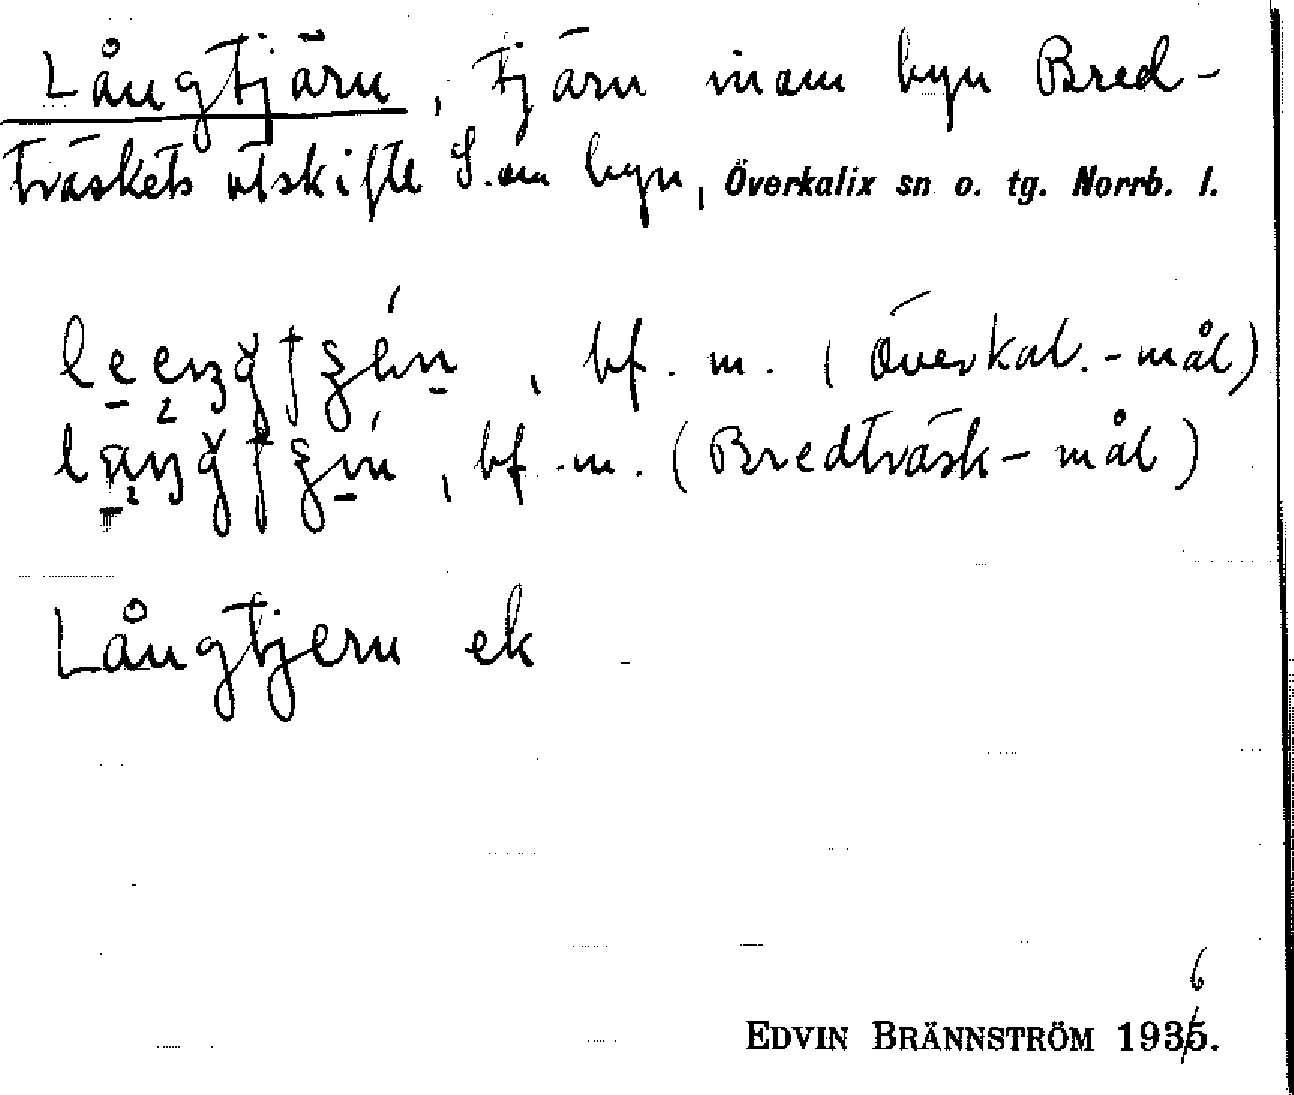 Långtjärn, tjärn inom byn Bred-
träskets utskifte S. om byn, Överkalix sn o. tg. Norrb. l.
, bf. m. (Överkal.-mål)
, bf. m. (Bredträsk-mål)
Långtjern ek
6
EDVIN BRÄNNSTRÖM 1935.